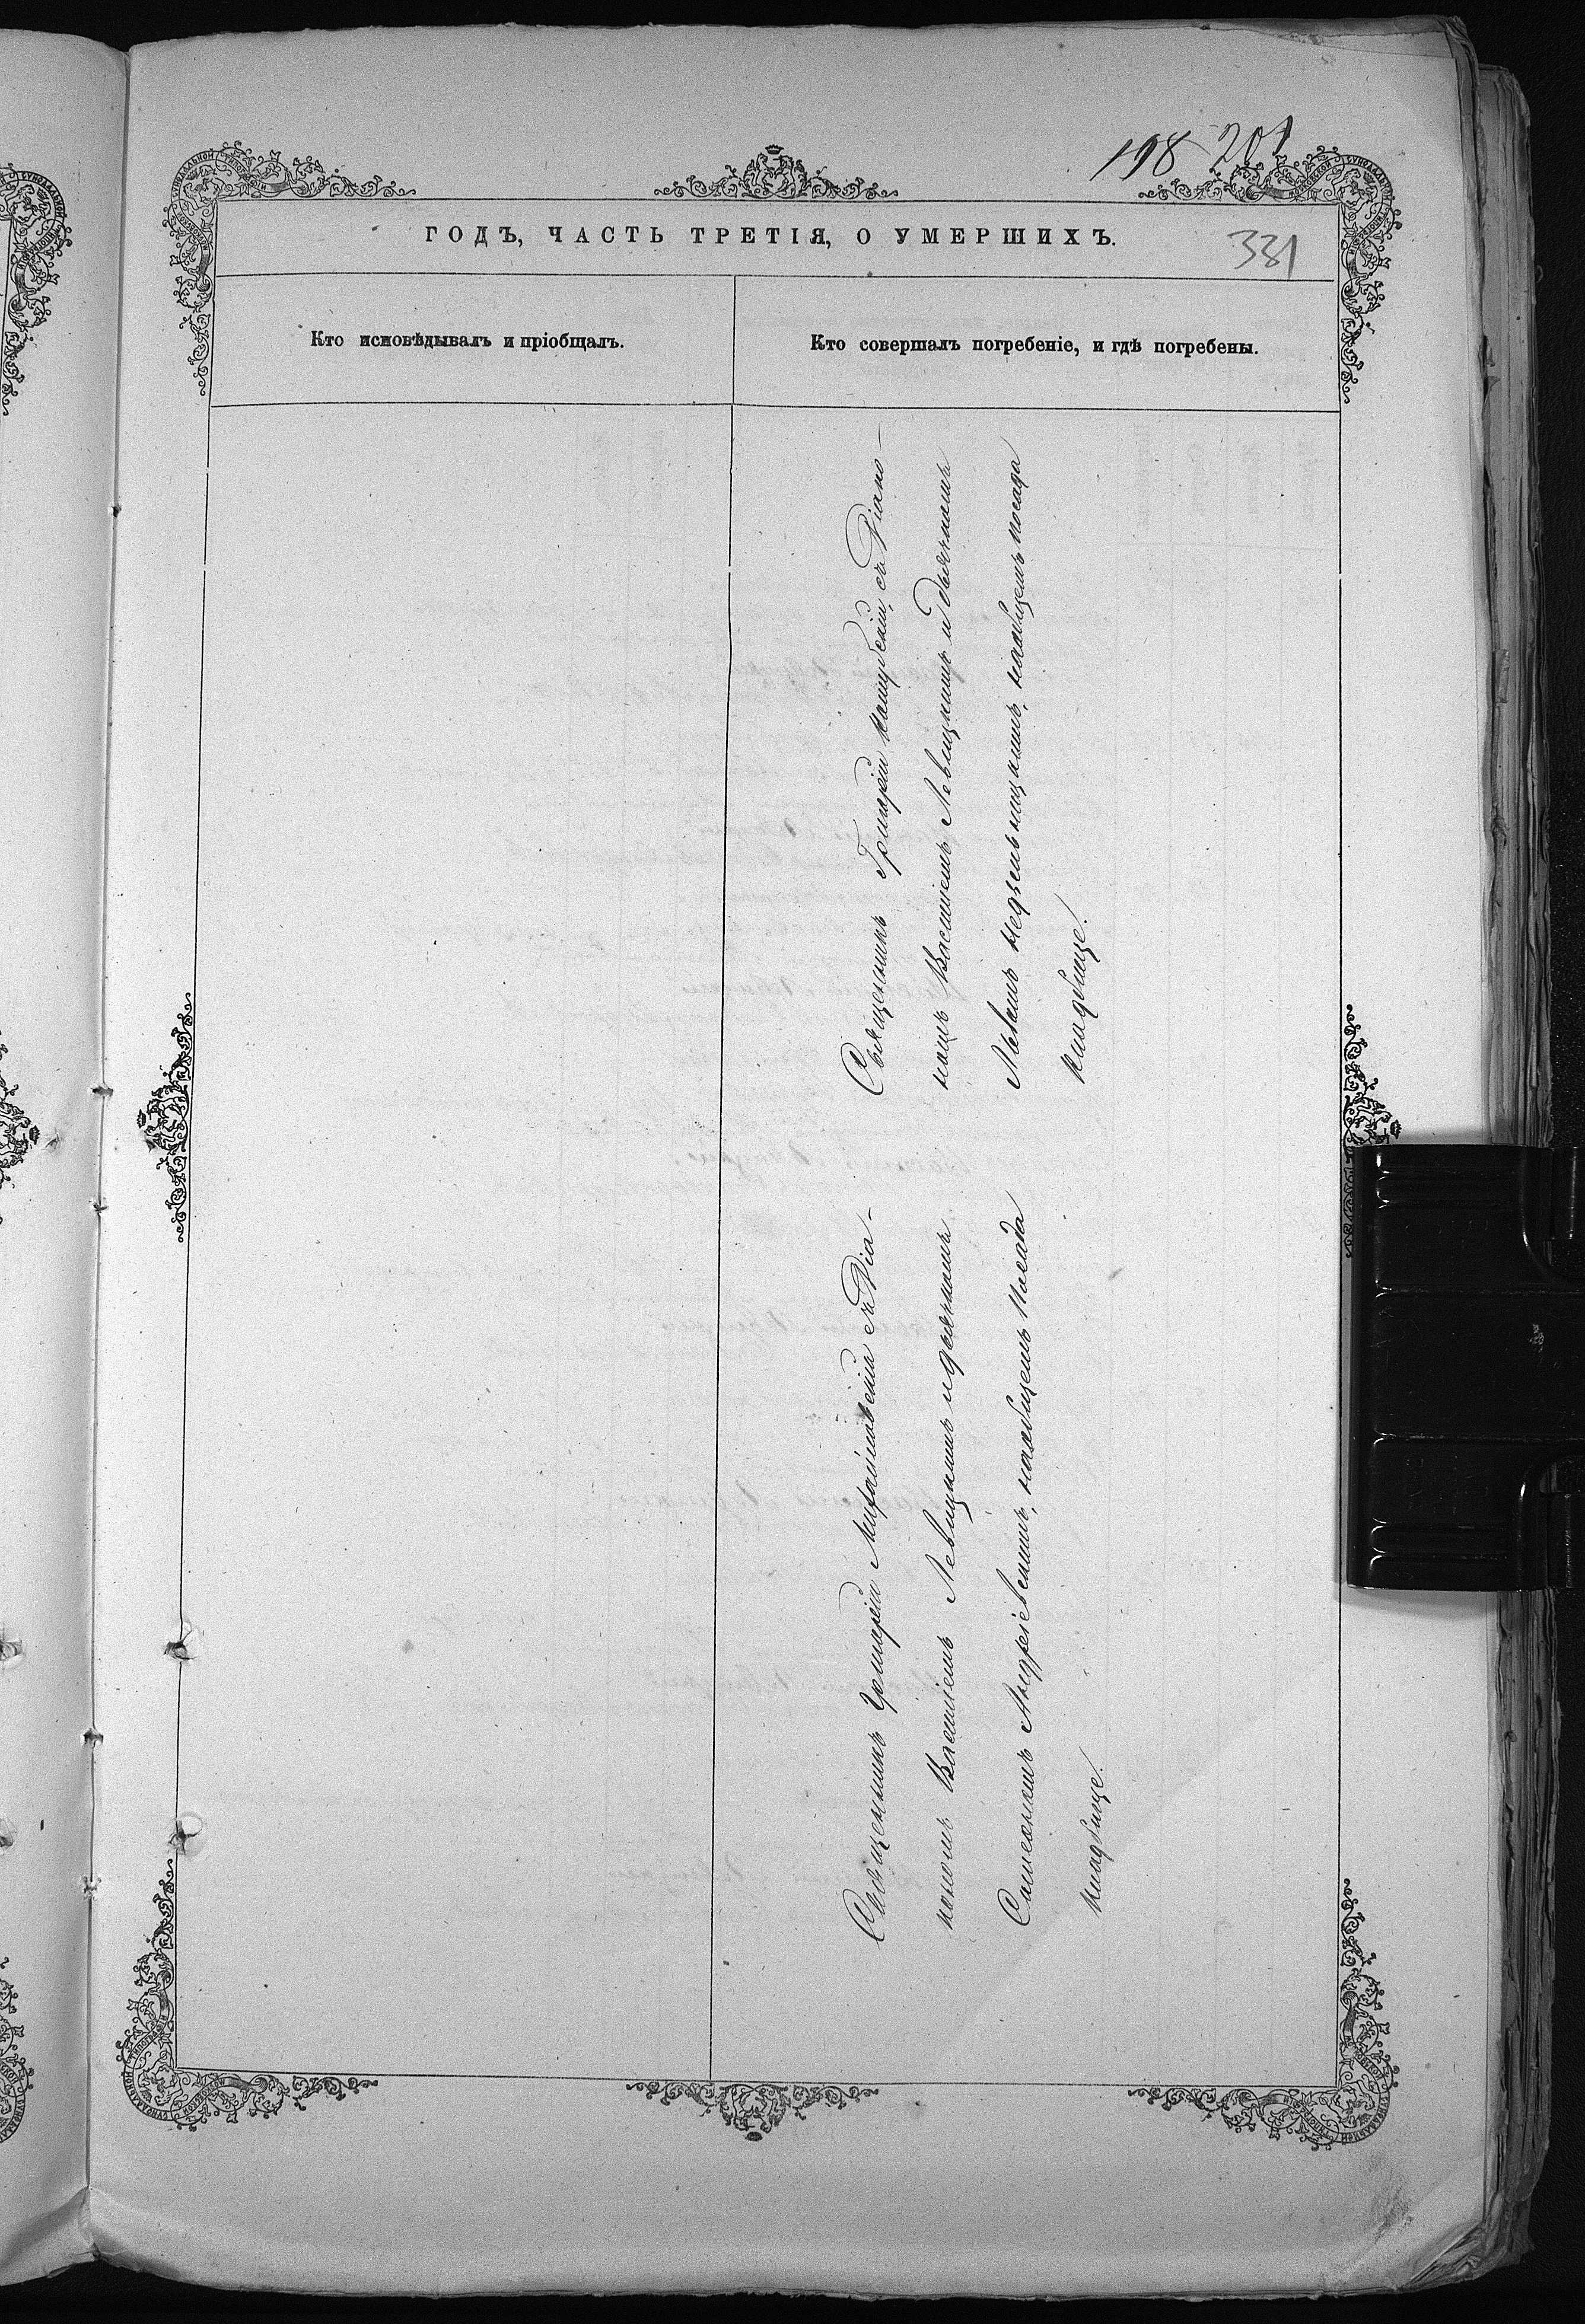 198 201
ГОДЪ, ЧАСТЬ ТРЕТІЯ, О УМЕРШИХЪ.
331
Кто исповѣдывалъ и пріобщалъ.
Кто совершалъ погребеніе, и гдѣ погребены.
Священникъ Григорій съ Діако-
номъ Василіемъ Левицкимъ и дьячкомъ
кладбищемъ посада
кладбище.
Священникъ Григорій съ Діа-
кономъ Василіемъ Левицкимъ и дьячкомъ
Симеономъ Андріевскимъ, кладбищемъ посада
кладбище.